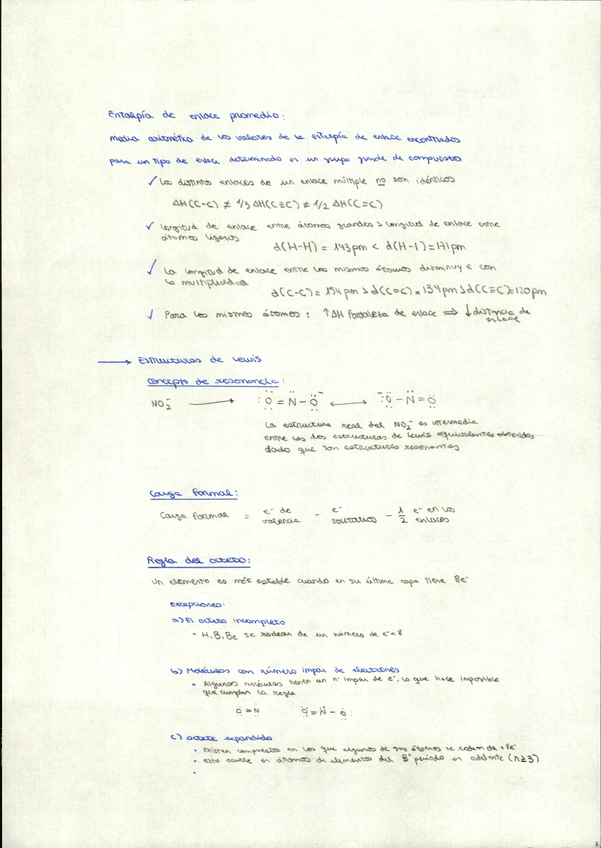 Entalpía de enlace promedio:
media aritmética de los valores de la entalpía de enlace encontrados
para un tipo de enlace determinado en un grupo grande de compuestos
✓ Los distintos enlaces de un enlace múltiple no son idénticos
ΔH(C-C) ≠ 1/3 ΔH(C≡C) ≠ 1/2 ΔH(C=C)
✓ Longitud de enlace entre átomos grandes > longitud de enlace entre
átomos ligeros
d(H-H) = 143pm < d(H-I) = 171pm
✓ La longitud de enlace entre los mismos átomos disminuye con
la multiplicidad
d(C-C) = 154pm > d(C=C) = 134pm > d(C≡C) = 120pm
✓ Para los mismos átomos: ↑ΔH Fortaleza de enlace ⟹ ↓distancia de
enlace
→ Estructuras de Lewis
Concepto de resonancia:
NO₂⁻ → :Ö=N̈-Ö⁻ ⟷ ⁻:Ö-N̈=Ö
La estructura real del NO₂⁻ es intermedia
entre las dos estructuras de Lewis equivalentes obtenidas
dado que son estructuras resonantes
Carga Formal:
Carga formal = e⁻ de valencia - e⁻ solitarios - 1/2 e⁻ en los enlaces
Regla del octeto:
Un elemento es más estable cuando en su última capa tiene 8e⁻
excepciones:
a) El octeto incompleto
- H, B, Be se rodean de un número de e⁻<8
b) Moléculas con número impar de electrones
• Algunas moléculas tienen un nº impar de e⁻, lo que hace imposible
que cumplan la regla
Ö=N Ö=N-Ö:
c) octeto expandido
• Existen compuestos en los que algunos de sus átomos se rodean de +8e⁻
• esto ocurre en átomos de elementos del 3º periodo en adelante (n≥3)